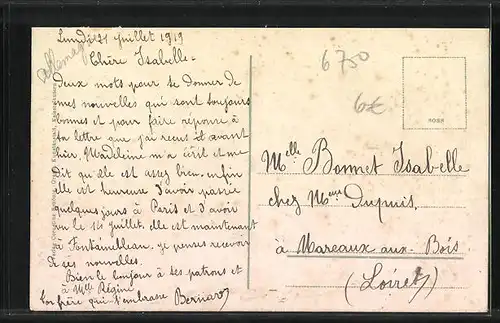 Lundi 21 juillet 1919
Allemagne
Chère Isabelle =
Deux mots pour te donner de
mes nouvelles qui sont toujours
bonnes et pour faire réponse à
ta lettre que j'ai reçus avant
hier, Madeleine m'a écrit et me
dit qu'elle est assez bien. enfin
elle est heureuse d'avoir passée
quelques jours à Paris et d'avoir
vu le 14 juillet. elle est maintenant
à Fontainebleau, je penses recevoir
de ses nouvelles.
Bien le bonjour à tes patrons et
à Mlle Régine
Ton frère qui t'embrasse Bernard
6750
6€
Melle Bonnet Isabelle
chez Mme Dupuis.
à Mareaux-aux-Bois
(Loiret)